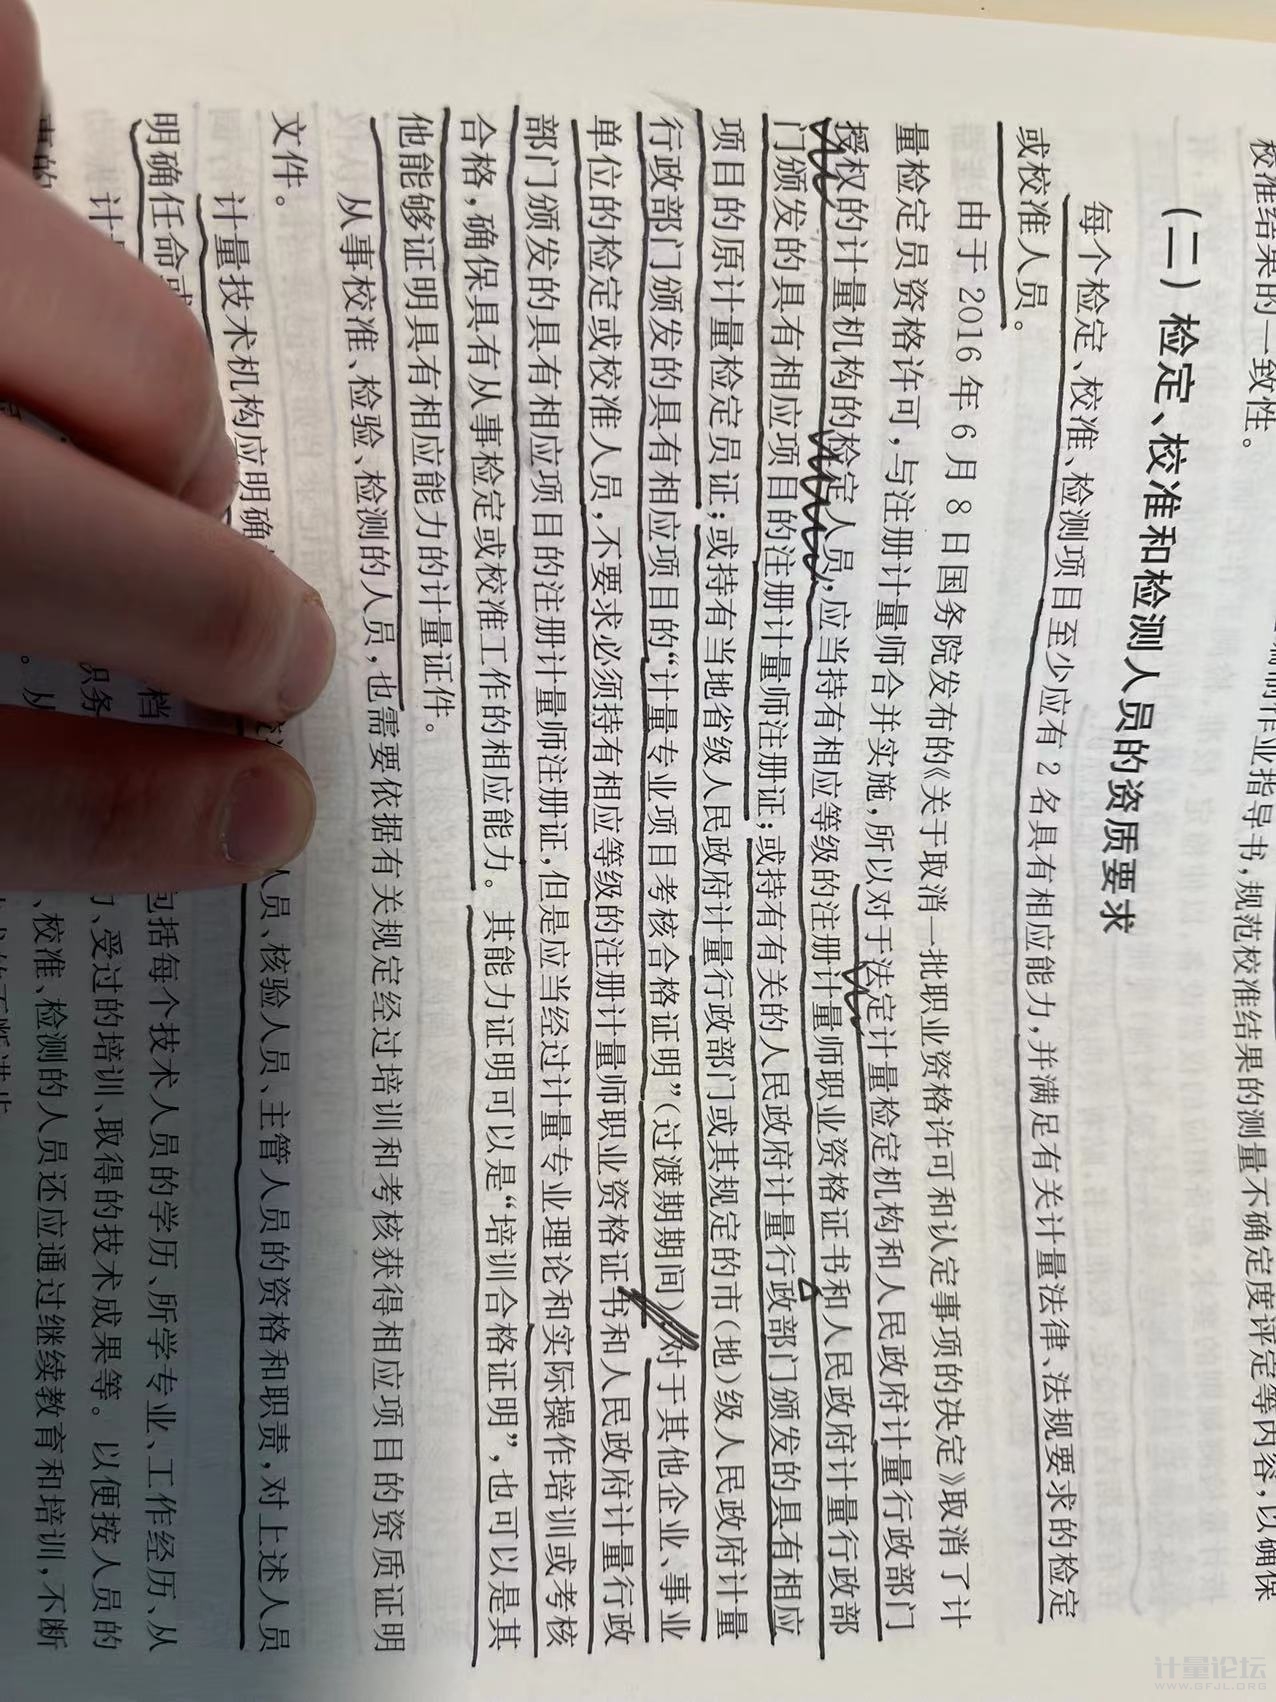 校准结果的一致性。
制作业指导书，规范校准结果的测量不确定度评定等内容，以确保
（二）检定、校准和检测人员的资质要求
每个检定、校准、检测项目至少应有 2 名具有相应能力，并满足有关计量法律、法规要求的检定
或校准人员。
由于 2016 年 6 月 8 日国务院发布的《关于取消一批职业资格许可和认定事项的决定》取消了计
量检定员资格许可，与注册计量师合并实施，所以对于法定计量检定机构和人民政府计量行政部门
授权的计量机构的检定人员，应当持有相应等级的注册计量师职业资格证书和人民政府计量行政部
门颁发的具有相应项目的注册计量师注册证；或持有有关的人民政府计量行政部门颁发的具有相应
项目的原计量检定员证；或持有当地省级人民政府计量行政部门或其规定的市（地）级人民政府计量
行政部门颁发的具有相应项目的“计量专业项目考核合格证明”（过渡期期间）对于其他企业、事业
单位的检定或校准人员，不要求必须持有相应等级的注册计量师职业资格证书和人民政府计量行政
部门颁发的具有相应项目的注册计量师注册证，但是应当经过计量专业理论和实际操作培训或考核
合格，确保具有从事检定或校准工作的相应能力。其能力证明可以是“培训合格证明”，也可以是其
他能够证明具有相应能力的计量证件。
从事校准、检验、检测的人员，也需要依据有关规定经过培训和考核获得相应项目的资质证明
文件。
计量技术机构应明确 人员、核验人员、主管人员的资格和职责，对上述人员
明确任命或
计 包括每个技术人员的学历、所学专业、工作经历、从
、受过的培训、取得的技术成果等。以便按人员的
职务
档
、校准、检测的人员还应通过继续教育和培训，不断
。从
计量论坛
WWW.GFJL.ORG